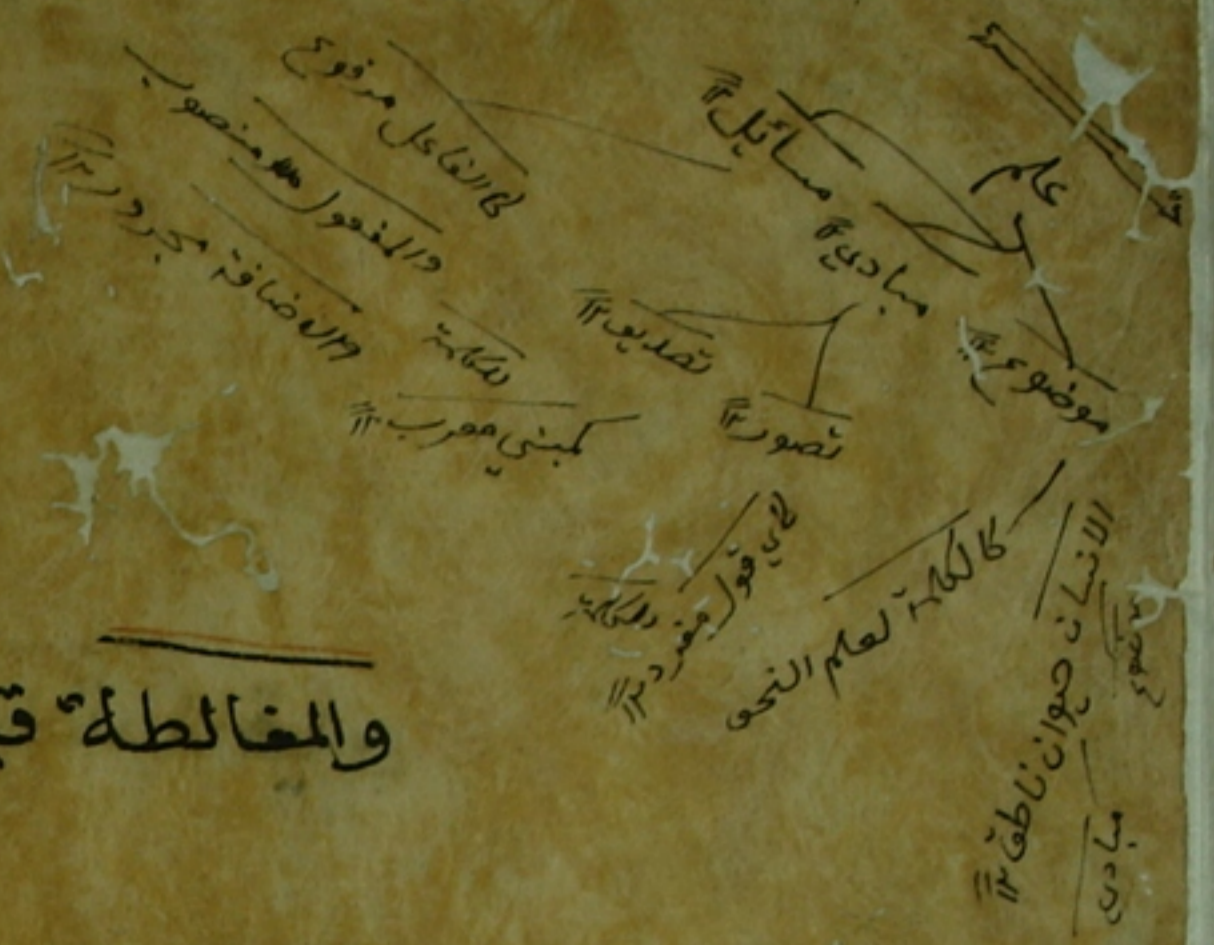 علم
مسائل ١٢
مبادي ١٢
موضوع ١٢
كالفاعل مرفوع
والمفعول منصوب
والاضافة مجرور ١٢
تصديق ١٢
تصور ١٢
للكلمة
كمبني معرب ١٢
كاي قول مفرد ١٢
للكلمة
كالكلمة لعلم النحو
الانسان حيوان ناطق ١٢
موضوع
مبادي
والمغالطة